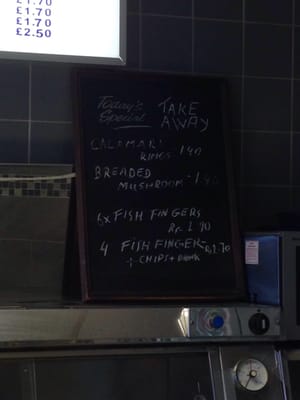 £1.70
£1.70
£1.70
£2.50
Today's TAKE
Special AWAY
CALAMARI
RINGS - 1.90
BREADED
MUSHROOM - 1.90
6x FISH FINGERS
1.90
4 FISH FINGER
+ CHIPS + DRINK